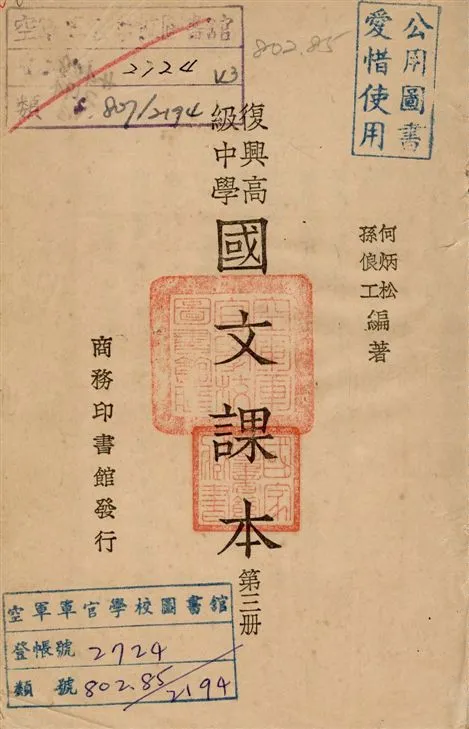 公用圖書
愛惜使用
802.85
圖書館
2724 V3
類 807/2194
何炳松
孫俍工
編著
復興高
級中學
國文課本
第三册
商務印書館發行
空軍軍官學校圖書館
登帳號 2724
類號 802.85/2194